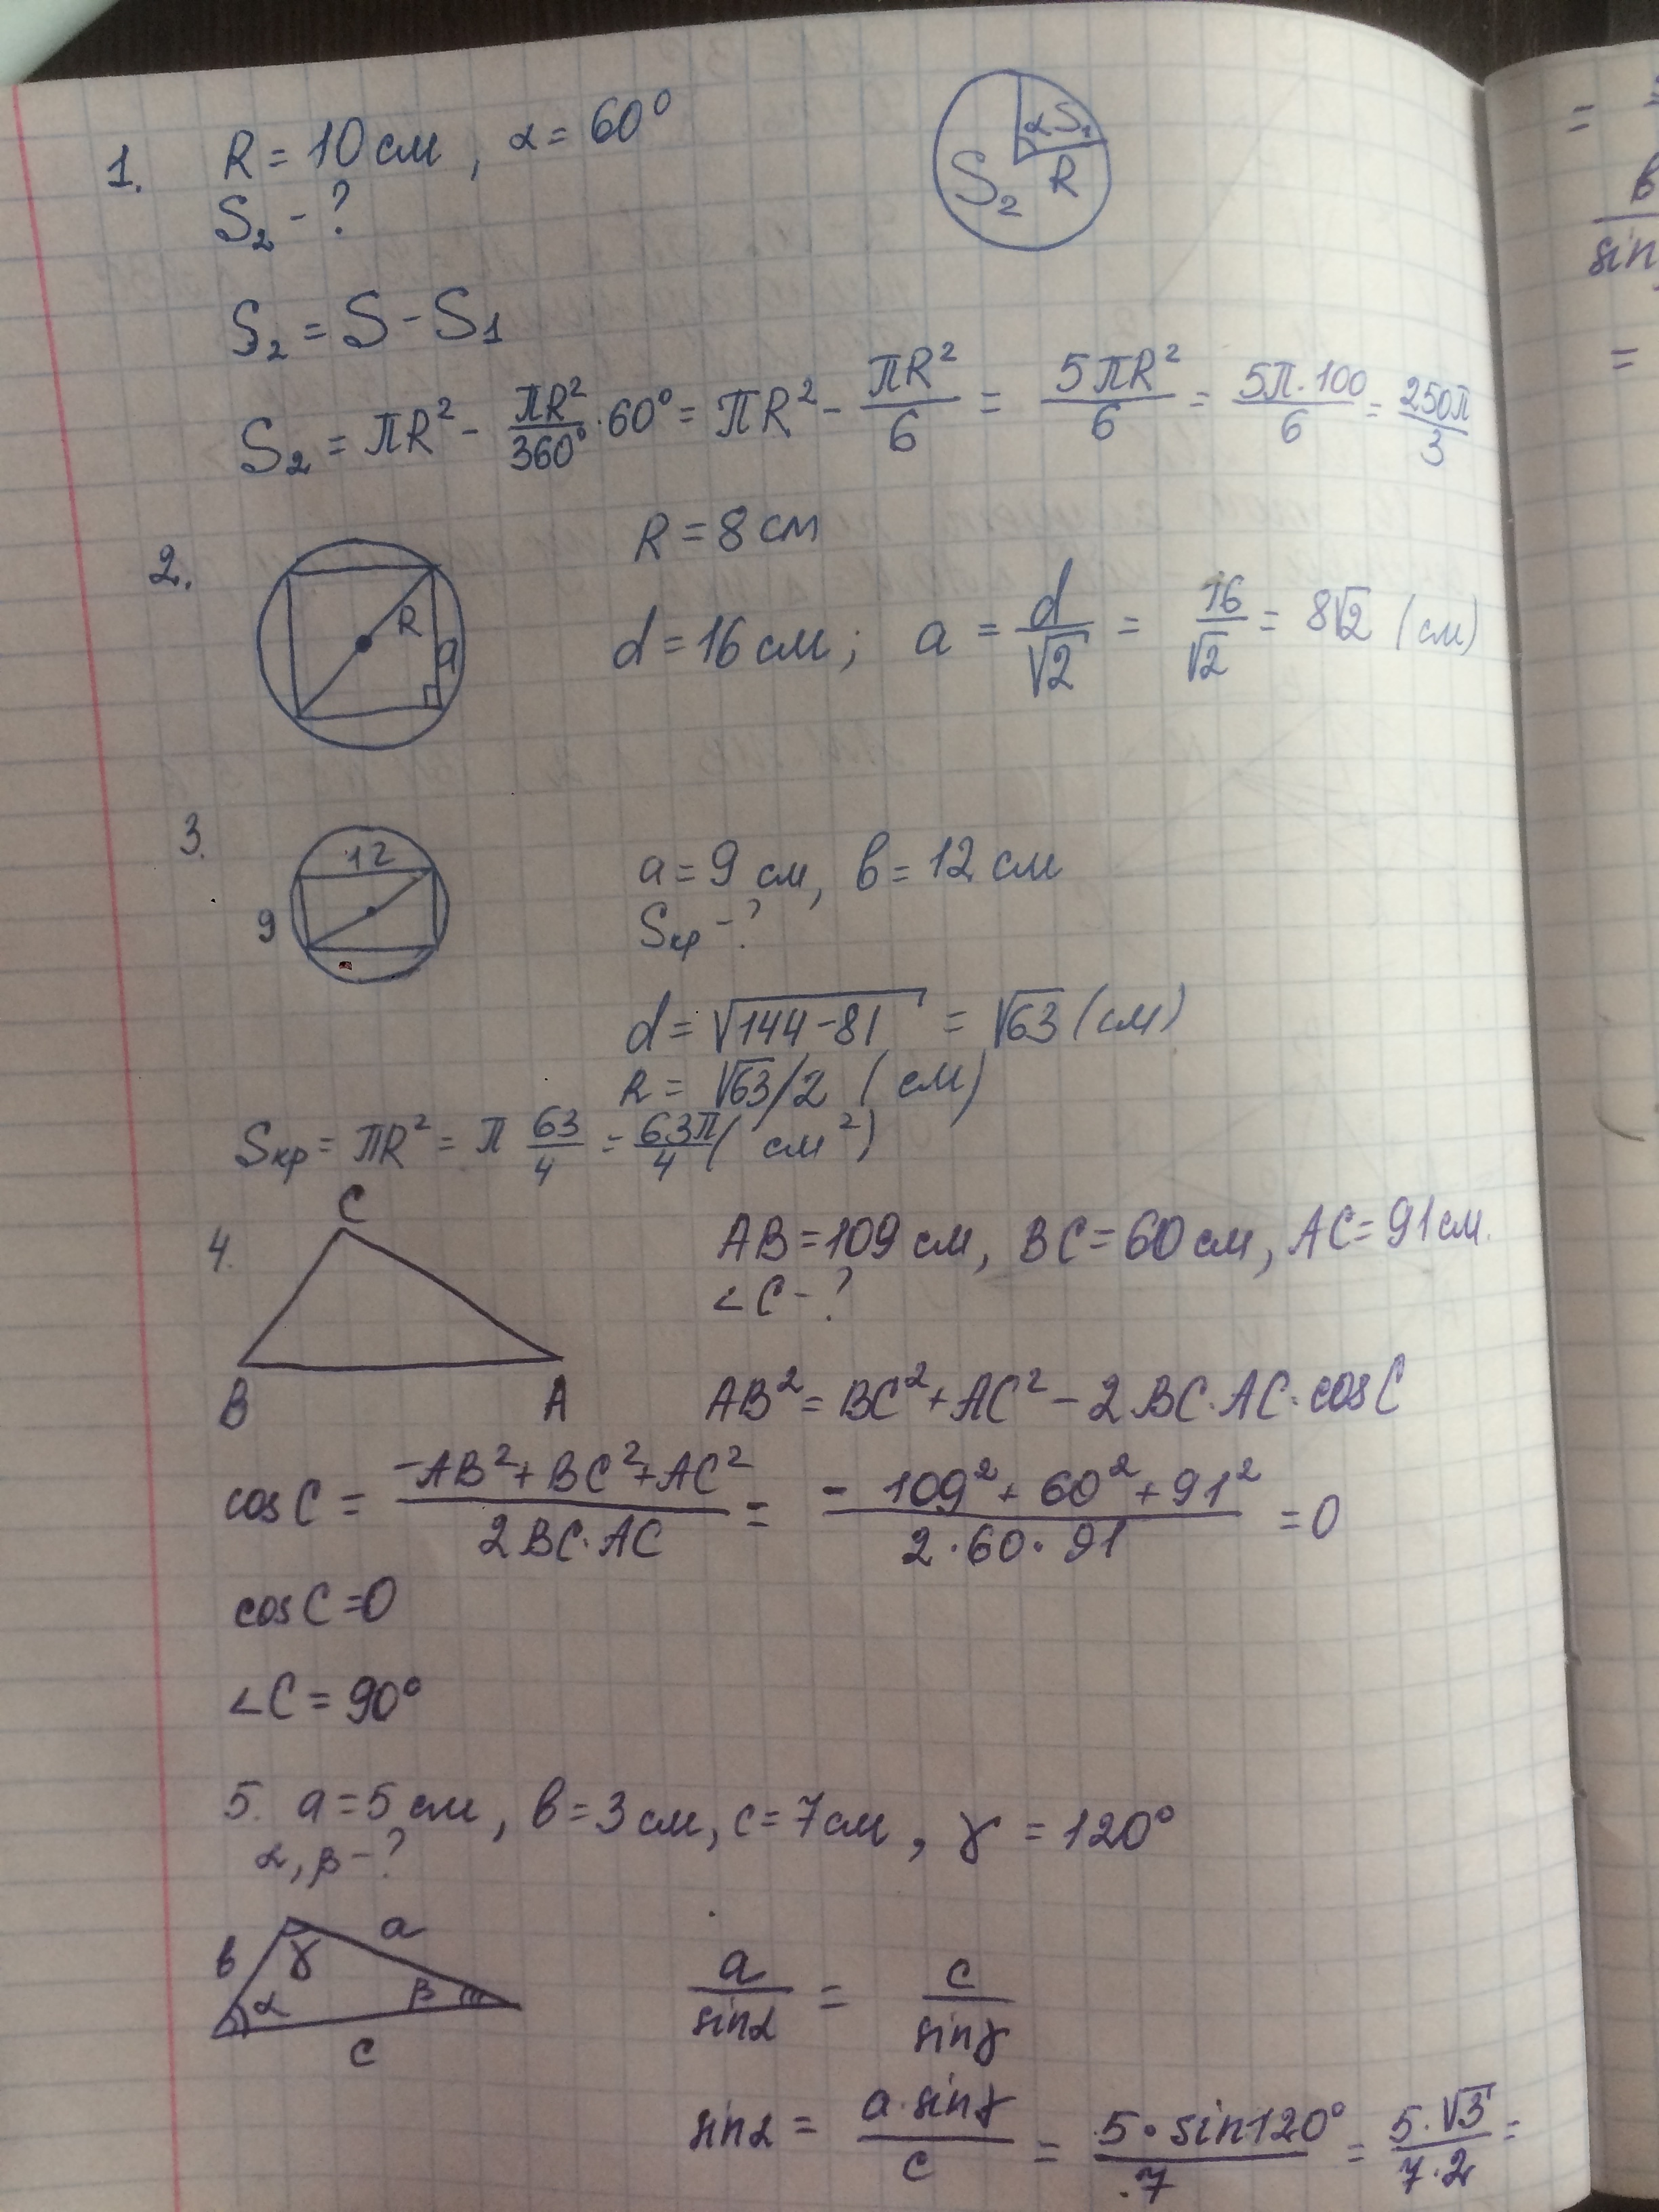 1. R = 10 см, α = 60°
S₂ - ?
α S₁
S₂ R
S₂ = S - S₁
S₂ = πR² - πR²/360° · 60° = πR² - πR²/6 = 5πR²/6 = 5π·100/6 = 250π/3
2. R = 8 см
R
a
d = 16 см; a = d/√2 = 16/√2 = 8√2 (см)
3. a = 9 см, в = 12 см
12
9
Sкр - ?
d = √144-81 = √63 (см)
R = √63/2 (см)
Sкр = πR² = π 63/4 = 63π/4 (см²)
4. AB = 109 см, BC = 60 см, AC = 91 см.
C
∠C - ?
B A
AB² = BC² + AC² - 2BC·AC·cosC
cosC = -AB²+BC²+AC²/2BC·AC = -109²+60²+91²/2·60·91 = 0
cosC = 0
∠C = 90°
5. a = 5 см, в = 3 см, c = 7 см, γ = 120°
α, β - ?
в γ a
α β
c
a/sinα = c/sinγ
sinα = a·sinγ/c = 5·sin120°/7 = 5·√3/7·2 =
=
в
sin
=